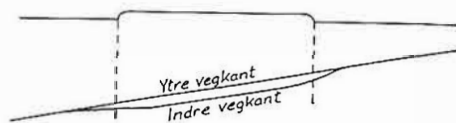 Ytre vegkant
Indre vegkant